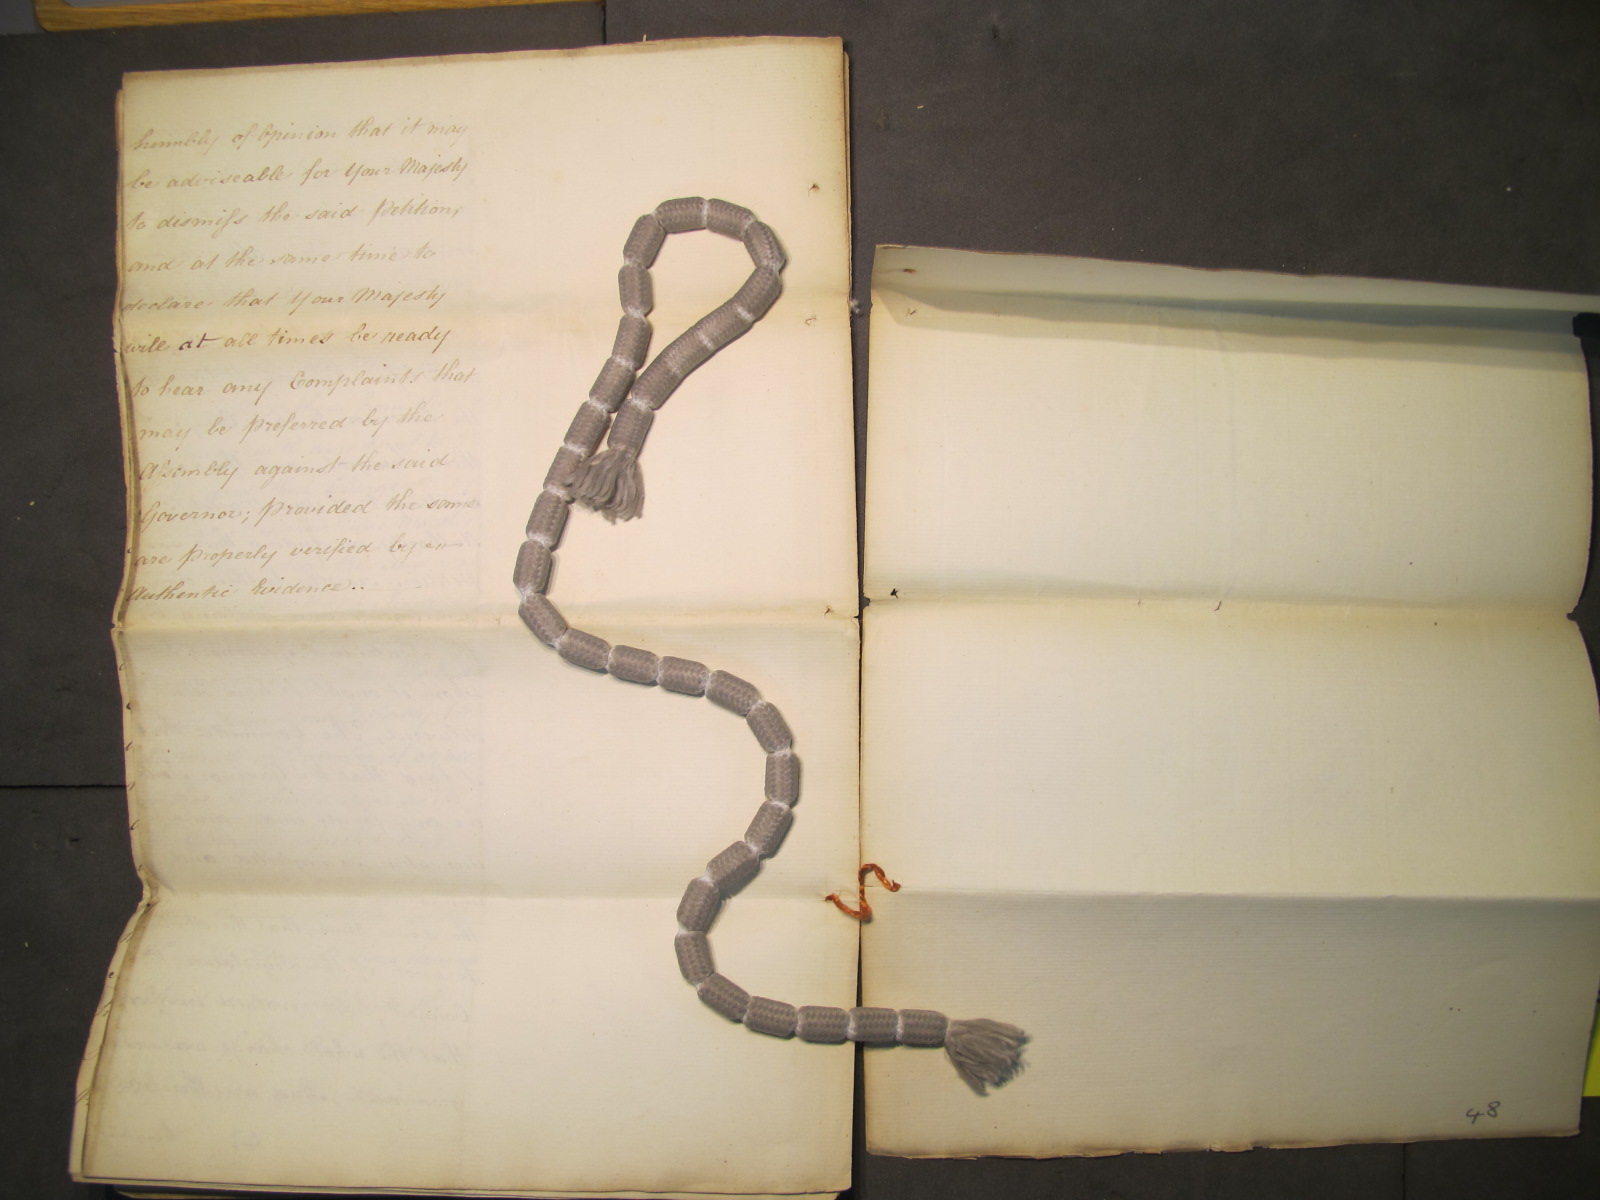 humbly of Opinion that it may
be adviseable for Your Majesty
to dismiss the said Petition,
and at the same time to
declare that Your Majesty
will at all times be ready
to hear any Complaints that
may be preferred by the
Assembly against the said
Governor; provided the same
are properly verified by
Authentic Evidence..
48